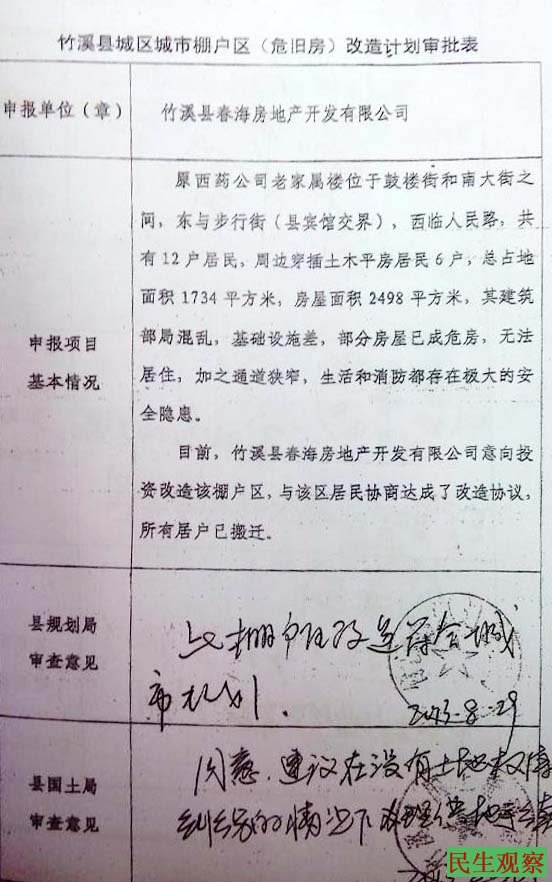 竹溪县城区城市棚户区（危旧房）改造计划审批表
申报单位（章）
竹溪县春海房地产开发有限公司
申报项目
基本情况
原西药公司老家属楼位于鼓楼街和南大街之
间，东与步行街（县宾馆交界），西临人民路，共
有12户居民，周边穿插土木平房居民6户，总占地
面积1734平方米，房屋面积2498平方米，其建筑
部局混乱，基础设施差，部分房屋已成危房，无法
居住，加之通道狭窄，生活和消防都存在极大的安
全隐患。
目前，竹溪县春海房地产开发有限公司意向投
资改造该棚户区，与该区居民协商达成了改造协议，
所有居户已搬迁。
县规划局
审查意见
此棚户区改造符合城
市规划.
8-29
县国土局
审查意见
同意.建议在没有土地权属
纠纷的情况下办理
民生观察